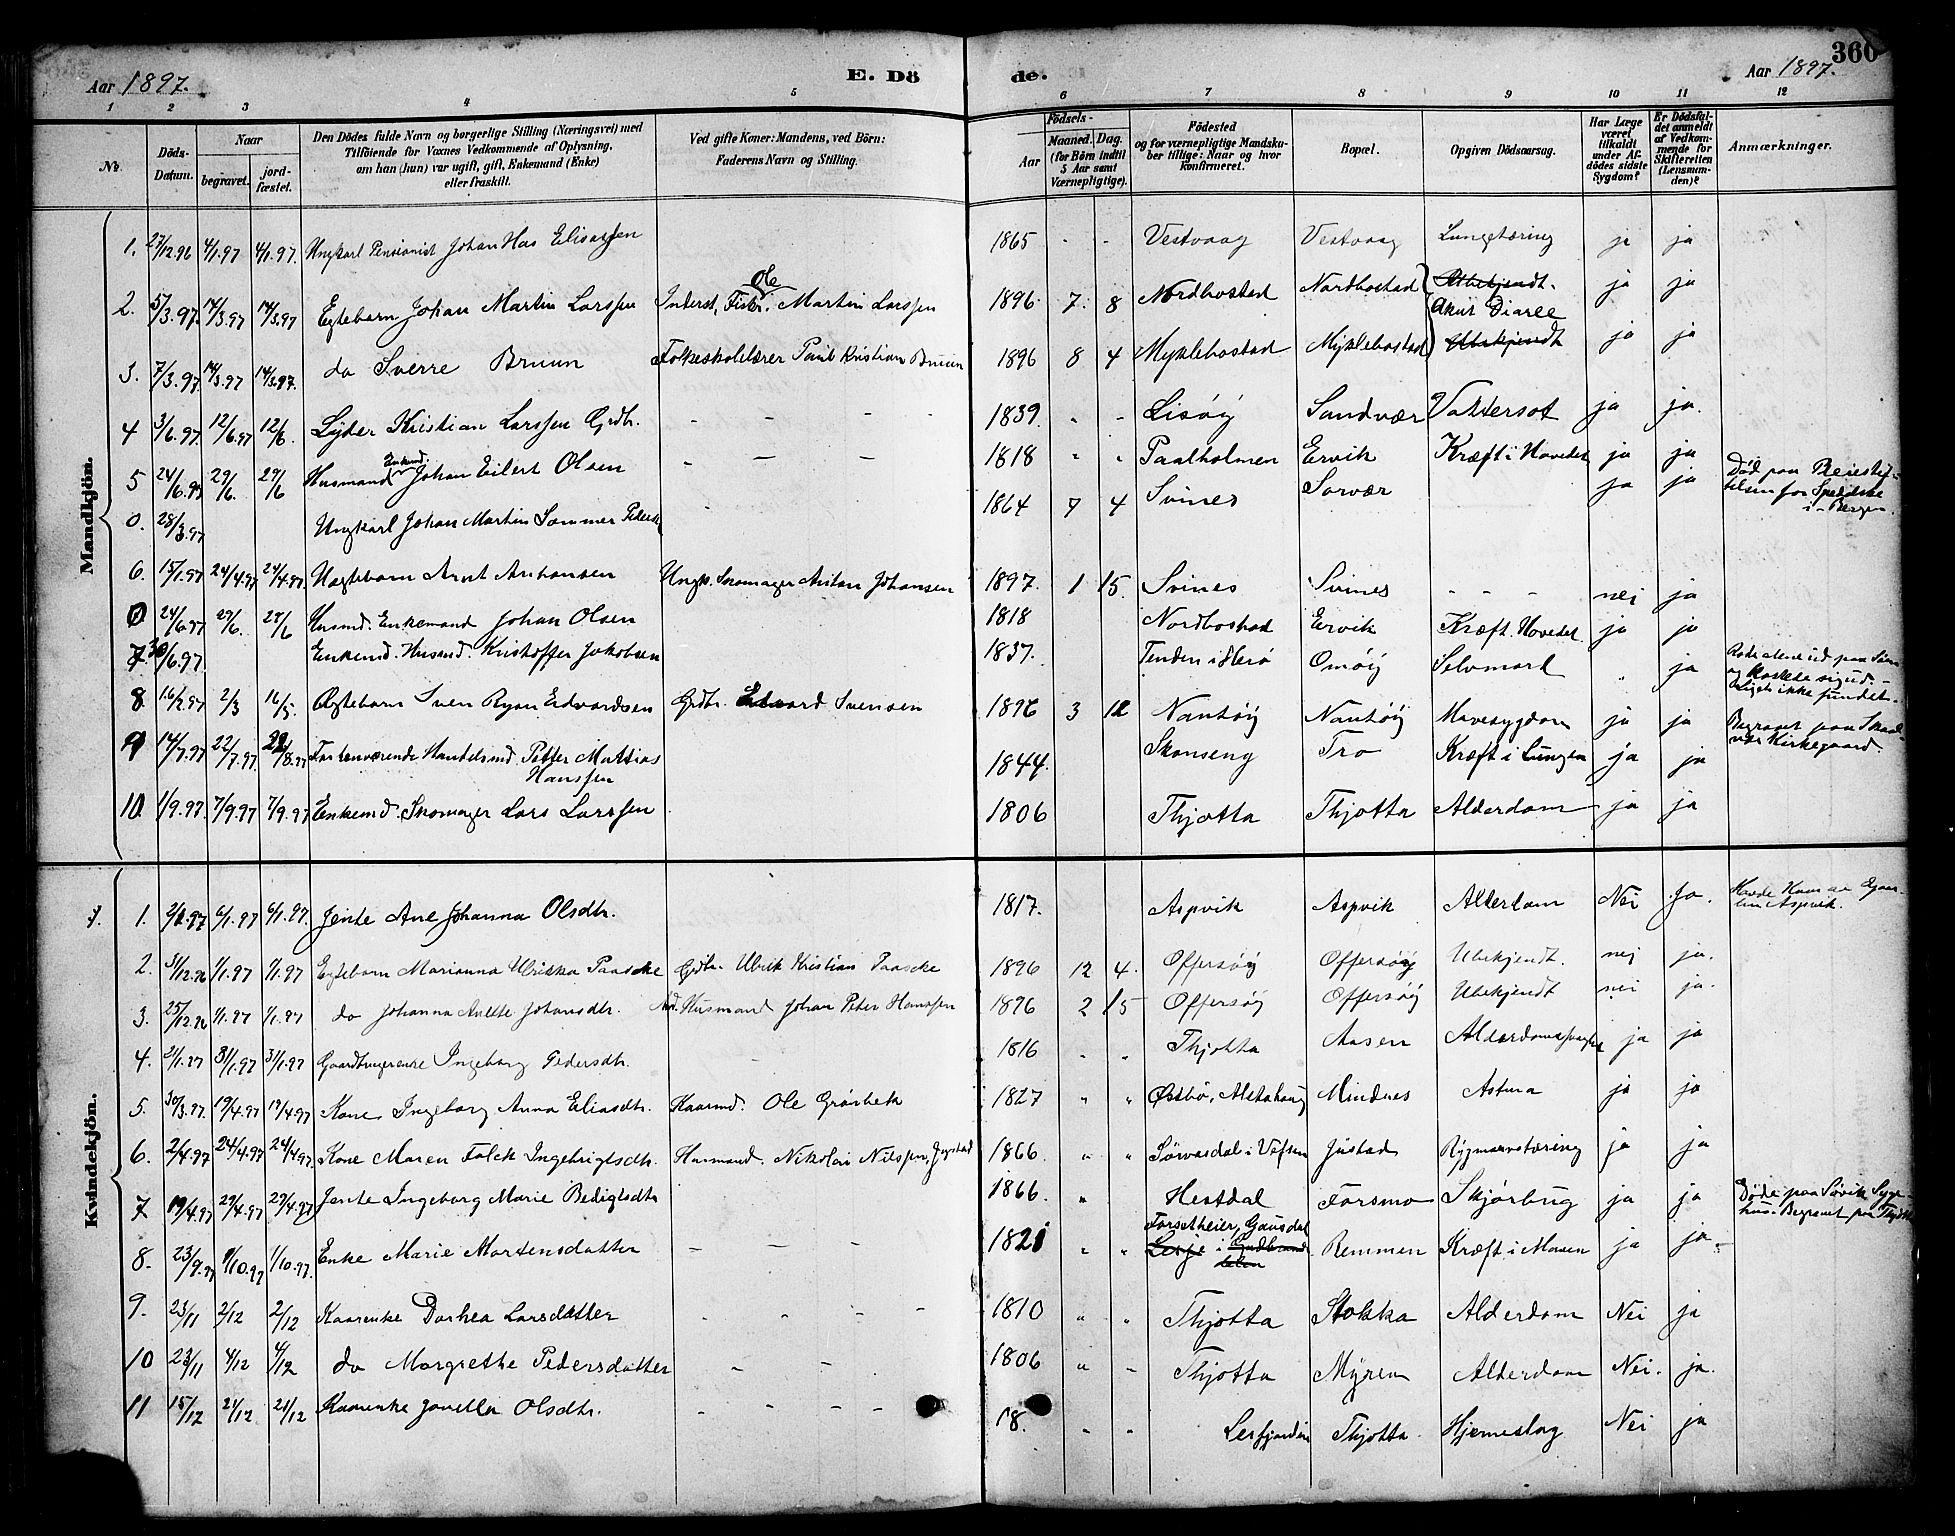 Aar 1897.
E. Dö
de.
Aar 1897.
360
1 2 3 4 5 6 7 8 9 10 11 12
№
Döds-Datum.
Naar
begravet.
jordfæstet.
Den Dödes fulde Navn og borgerlige Stilling (Næringsvei) med
Tilföiende for Voxnes Vedkommende af Oplysning,
om han (hun) var ugift, gift, Enkemand (Enke)
eller fraskilt.
Ved gifte Koner: Mandens, ved Börn:
Faderens Navn og Stilling.
Födsels-
Aar
Maaned. Dag.
(for Börn indtil
5 Aar samt
Værnepligtige).
Födested
og for værnepligtige Mandsku-
ber tillige: Naar og hvor
konfirmeret.
Bopæl.
Opgiven Dödsaarsag.
Har Læge
været
tilkaldt
under Af-
dödes sidste
Sygdom?
Er Dödsfal-
det anmeldt
af Vedkom-
mende for
Skifteretten
(Lensman-
den)?
Anmærkninger.
Mandkjön.
1. 27/12.96 4/1.97 4/1.97. Ungkarl Pensionist Johan Elisassen 1865 - - Vestvaag Vestvaag Lungetæring ja ja
2. 5/3.97. 14/3.97 14/3.97 Egtebarn Johan Martin Larssen Inderst, Fisk. Ole Martin Larssen 1896 7. 8 Nordbostad Nordbostad Ubekjendt. Akut Diaree ja ja
3. 7/3.97. 14/3.97 14/3.97. do Sverre Bruun Folkeskolelærer Paul Kristian Bruun 1896 8 4 Myklebostad Myklebostad Ubekjendt ja ja
4 3/6.97. 12/6.97 12/6. Lyder Kristian Larssen Grdbr. - - - 1839. - - Lisøy Sandvær Vattersot ja ja.
5 24/6.97 29/6. 29/6 Husmand Enkemd. Johan Eilert Olsen - - - 1818 " " Paalholmen Ervik Kræft i Hovedet ja ja
0. 28/3.97 Ungkarl Johan Martin Sommer 1864 7 4 Svines Sørvær ja ja Død paa Pleiestif-
telsen for Spedalske
i Bergen.
6. 15/1.97 24/4.97 24/4.97. Uægtebarn Arnt Antonsen Ungk. Skomager Anton Johansen 1897. 1 15. Svines Svines - - - nei ja
0 24/6.97 29/6. 29/6 Husmd. Enkemand Johan Olsen 1818 Nordbostad Ervik Kræft. Hovedet. ja ja
7. 30/6.97. Enkemd. Husmd. Kristoffer Jakobsen 1837. Tenden i Herø Omøy Selvmord " ja Rode alene ud paa Søen
og kastede sig ud. -
Liget ikke fundet.
8. 16/2.97 2/3 16/5. Ægtebarn Sven Ryan Edvardsen Grdbr. Edvard Svensen 1896 3 12 Nautøy Nautøy Mavesygdom ja ja
9 14/7.97 22/7.97. 22/8.97 Forhenværende Handelsmd. Petter Mathias
Hanssen 1844. Skonseng Tro Kræft i Lungen ja ja Begravet paa
Kirkegaard.
10. 1/9.97. 7/9.97 7/9.97 Enkemd. Skomager Lars Larssen 1806 Thjøtta Thjøtta Alderdom ja ja
Kvindekjön.
1. 2/1.97 6/1.97 6/1.97. Jente Ane Johanna Olsdtr. 1817. Aspvik Aspvik Alderdom Nei Ja.
2. 31/12.96 1/1.97 1/1.97 Egtebarn Marianna Ulrikka Paaske Grdbr. Ulrik Kristian Paaske 1896 12 4. Offersøy Offersøy Ubekjendt. nei ja.
3. 25/12.96 1/1.97 1/1.97 do Johanna Anette Johansdtr. Husmand Johan Peter Hanssen 1896 2 15 Offersøy Offersøy Ubekjendt nei ja.
4. 2/1.97 31/1.97 31/1.97 Gaardbrugerenke Ingeborg Pedersdtr. - 1816 " " Thjøtta Aasen ja ja
5. 30/3.97. 19/4.97 19/4.97 Kone Ingeborg Anna Eliasdtr. Kaarmd. Ole Grønbek 1827 " " Østbø, Alstahaug Mindnes Astma ja ja
6. 2/4.97 24/4.97 24/4.97. Kone Maren Falck Ingebrigtsdtr. Husmand. Nikolai Nilssen, 1866. " " i Vefsen Justad Rygmarvstæring ja ja
7 19/4.97 29/4.97 29/4.97 Jente Ingeborg Marie - - 1866. " Hestdal Forsmo Skjørbug ja ja Døde paa Søvik Syge-
hus. Begravet paa Thjøtta
8. 23/9.97 1/10.97 1/10.97. Enke Marie Mortensdatter - - - 1821 " " Forsetheier, Gausdal
Lesje i Gudbrands
dalen Remmen Kræft i Maven ja ja -
9. 23/11 2/12 2/12 Kaarenke Dorhea Larsdatter - - - - 1810 " " Thjøtta Stokka Alderdom Nei ja
10 23/11 4/12 4/12 do Margrethe Pedersdatter - - 1806 " - Thjøtta Myren Alderdom Nei. ja.
11 15/12 21/12 21/12 Kaarenke Jonetta Olsdtr. - - - - 18. " " Leirfjorden Thjøtta. Hjerneslag Nei ja